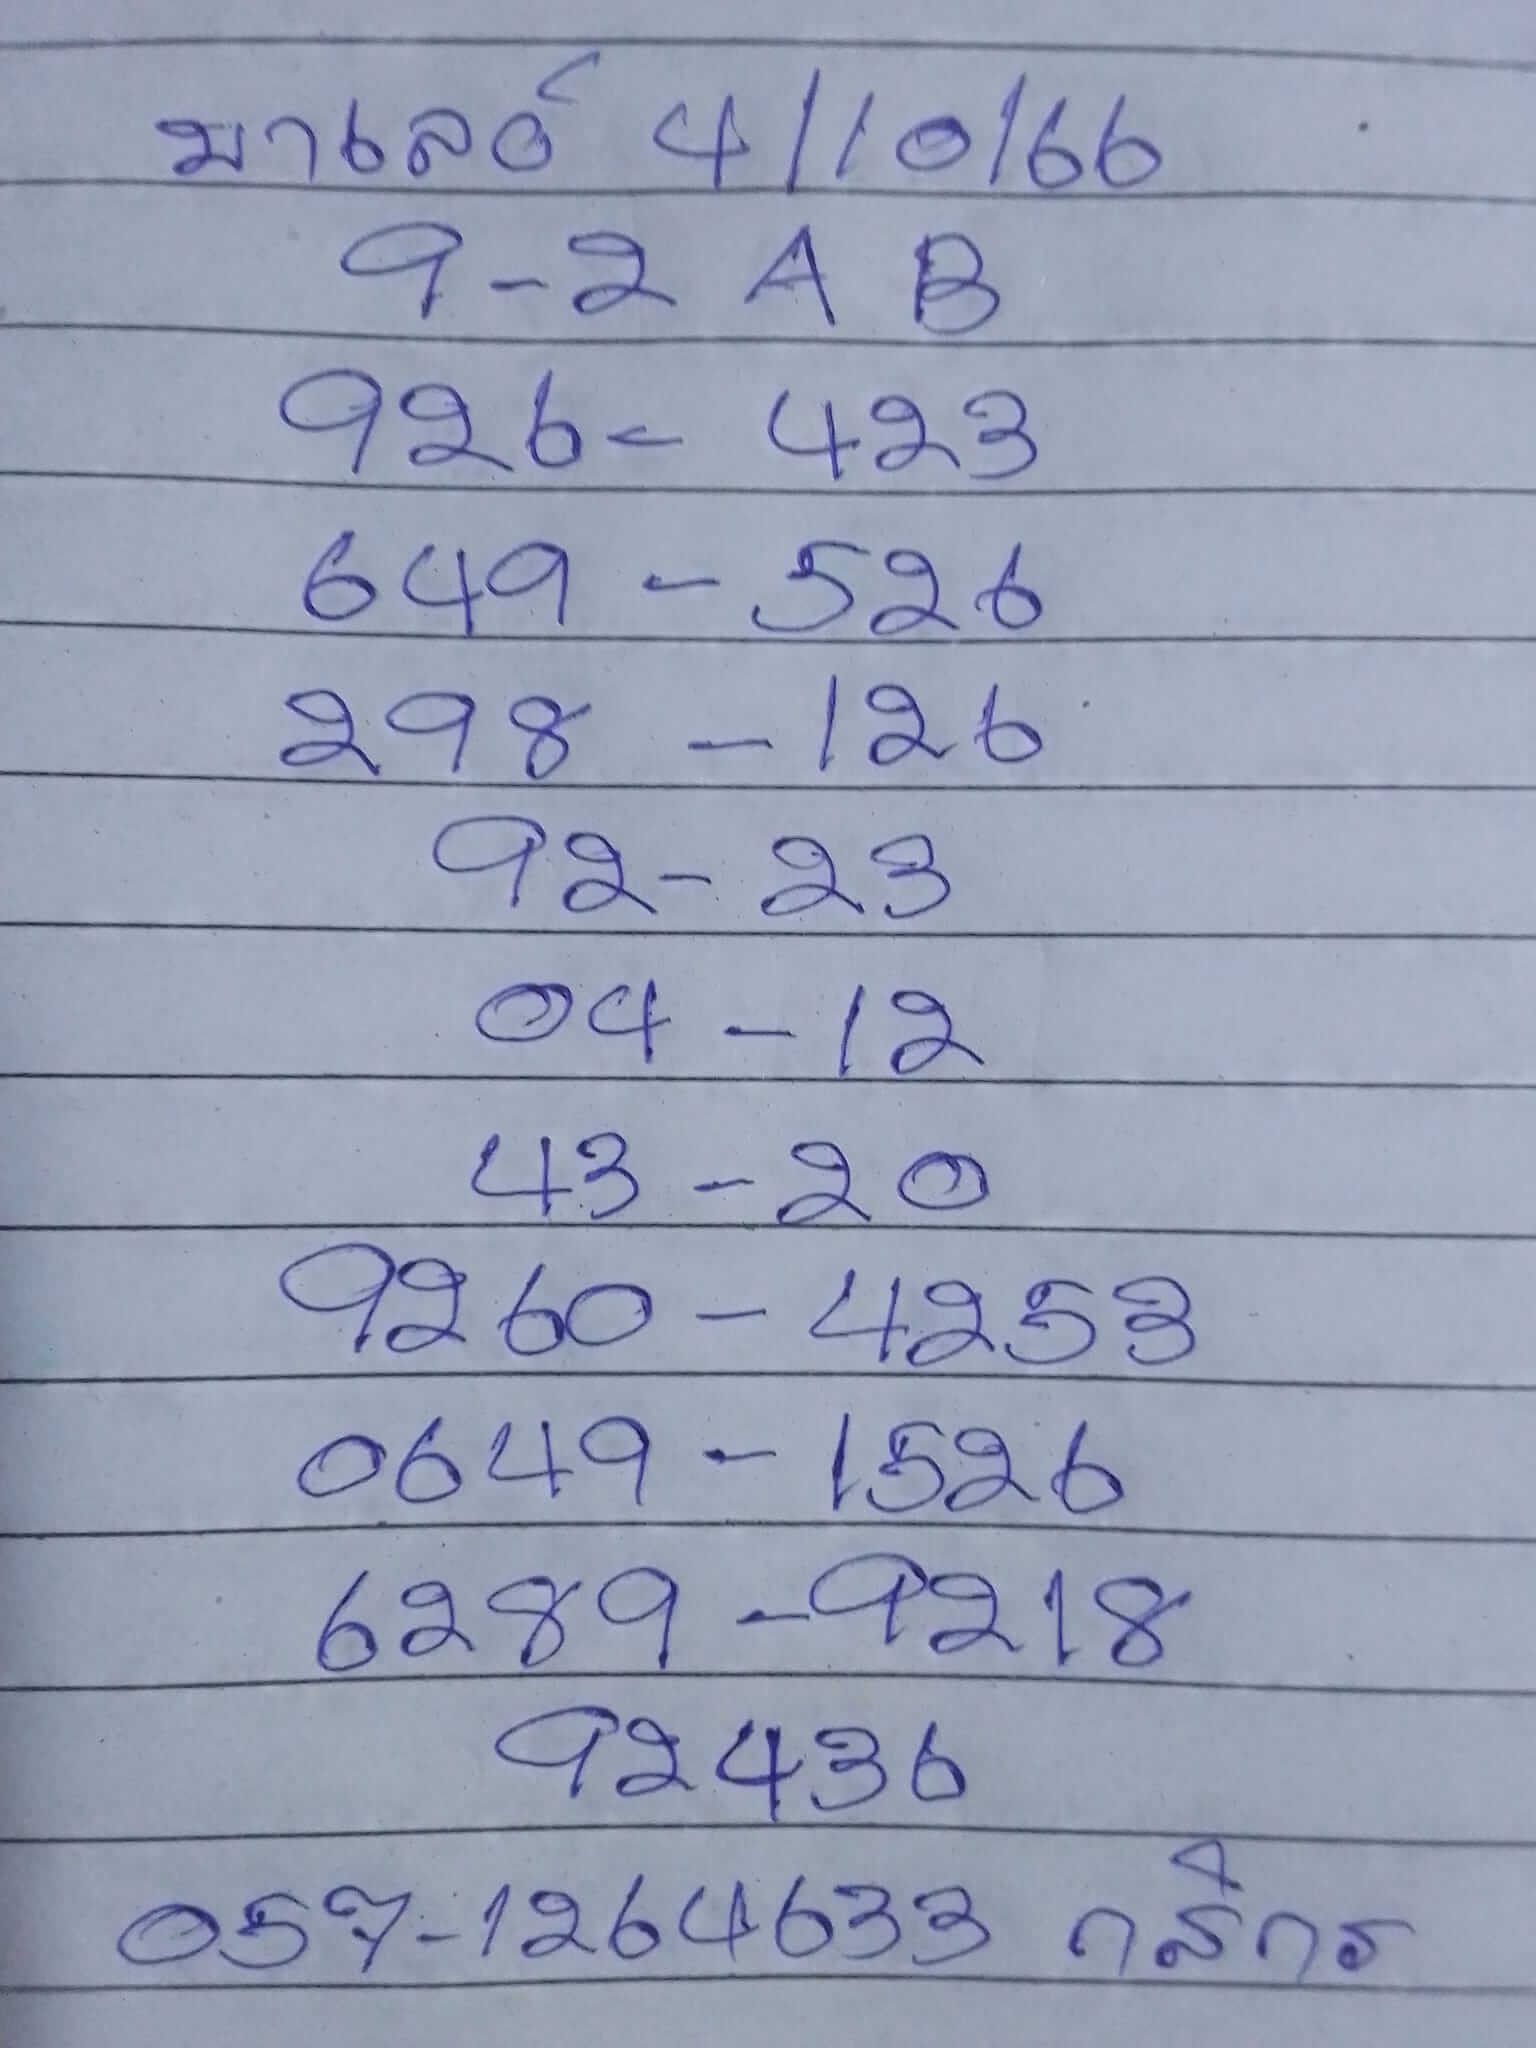 มาเลย์ 4/10/66
9-2 A B
926- 423
649 - 526
298 - 126
92- 23
04 - 12
43 - 20
9260 - 4253
0649 - 1526
6289 - 9218
92436
057-1264633 กสิกร